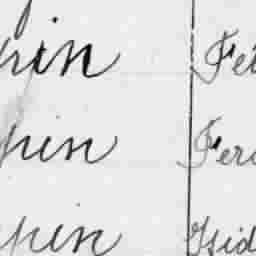 pin Fe
pin Fer
pin Isid